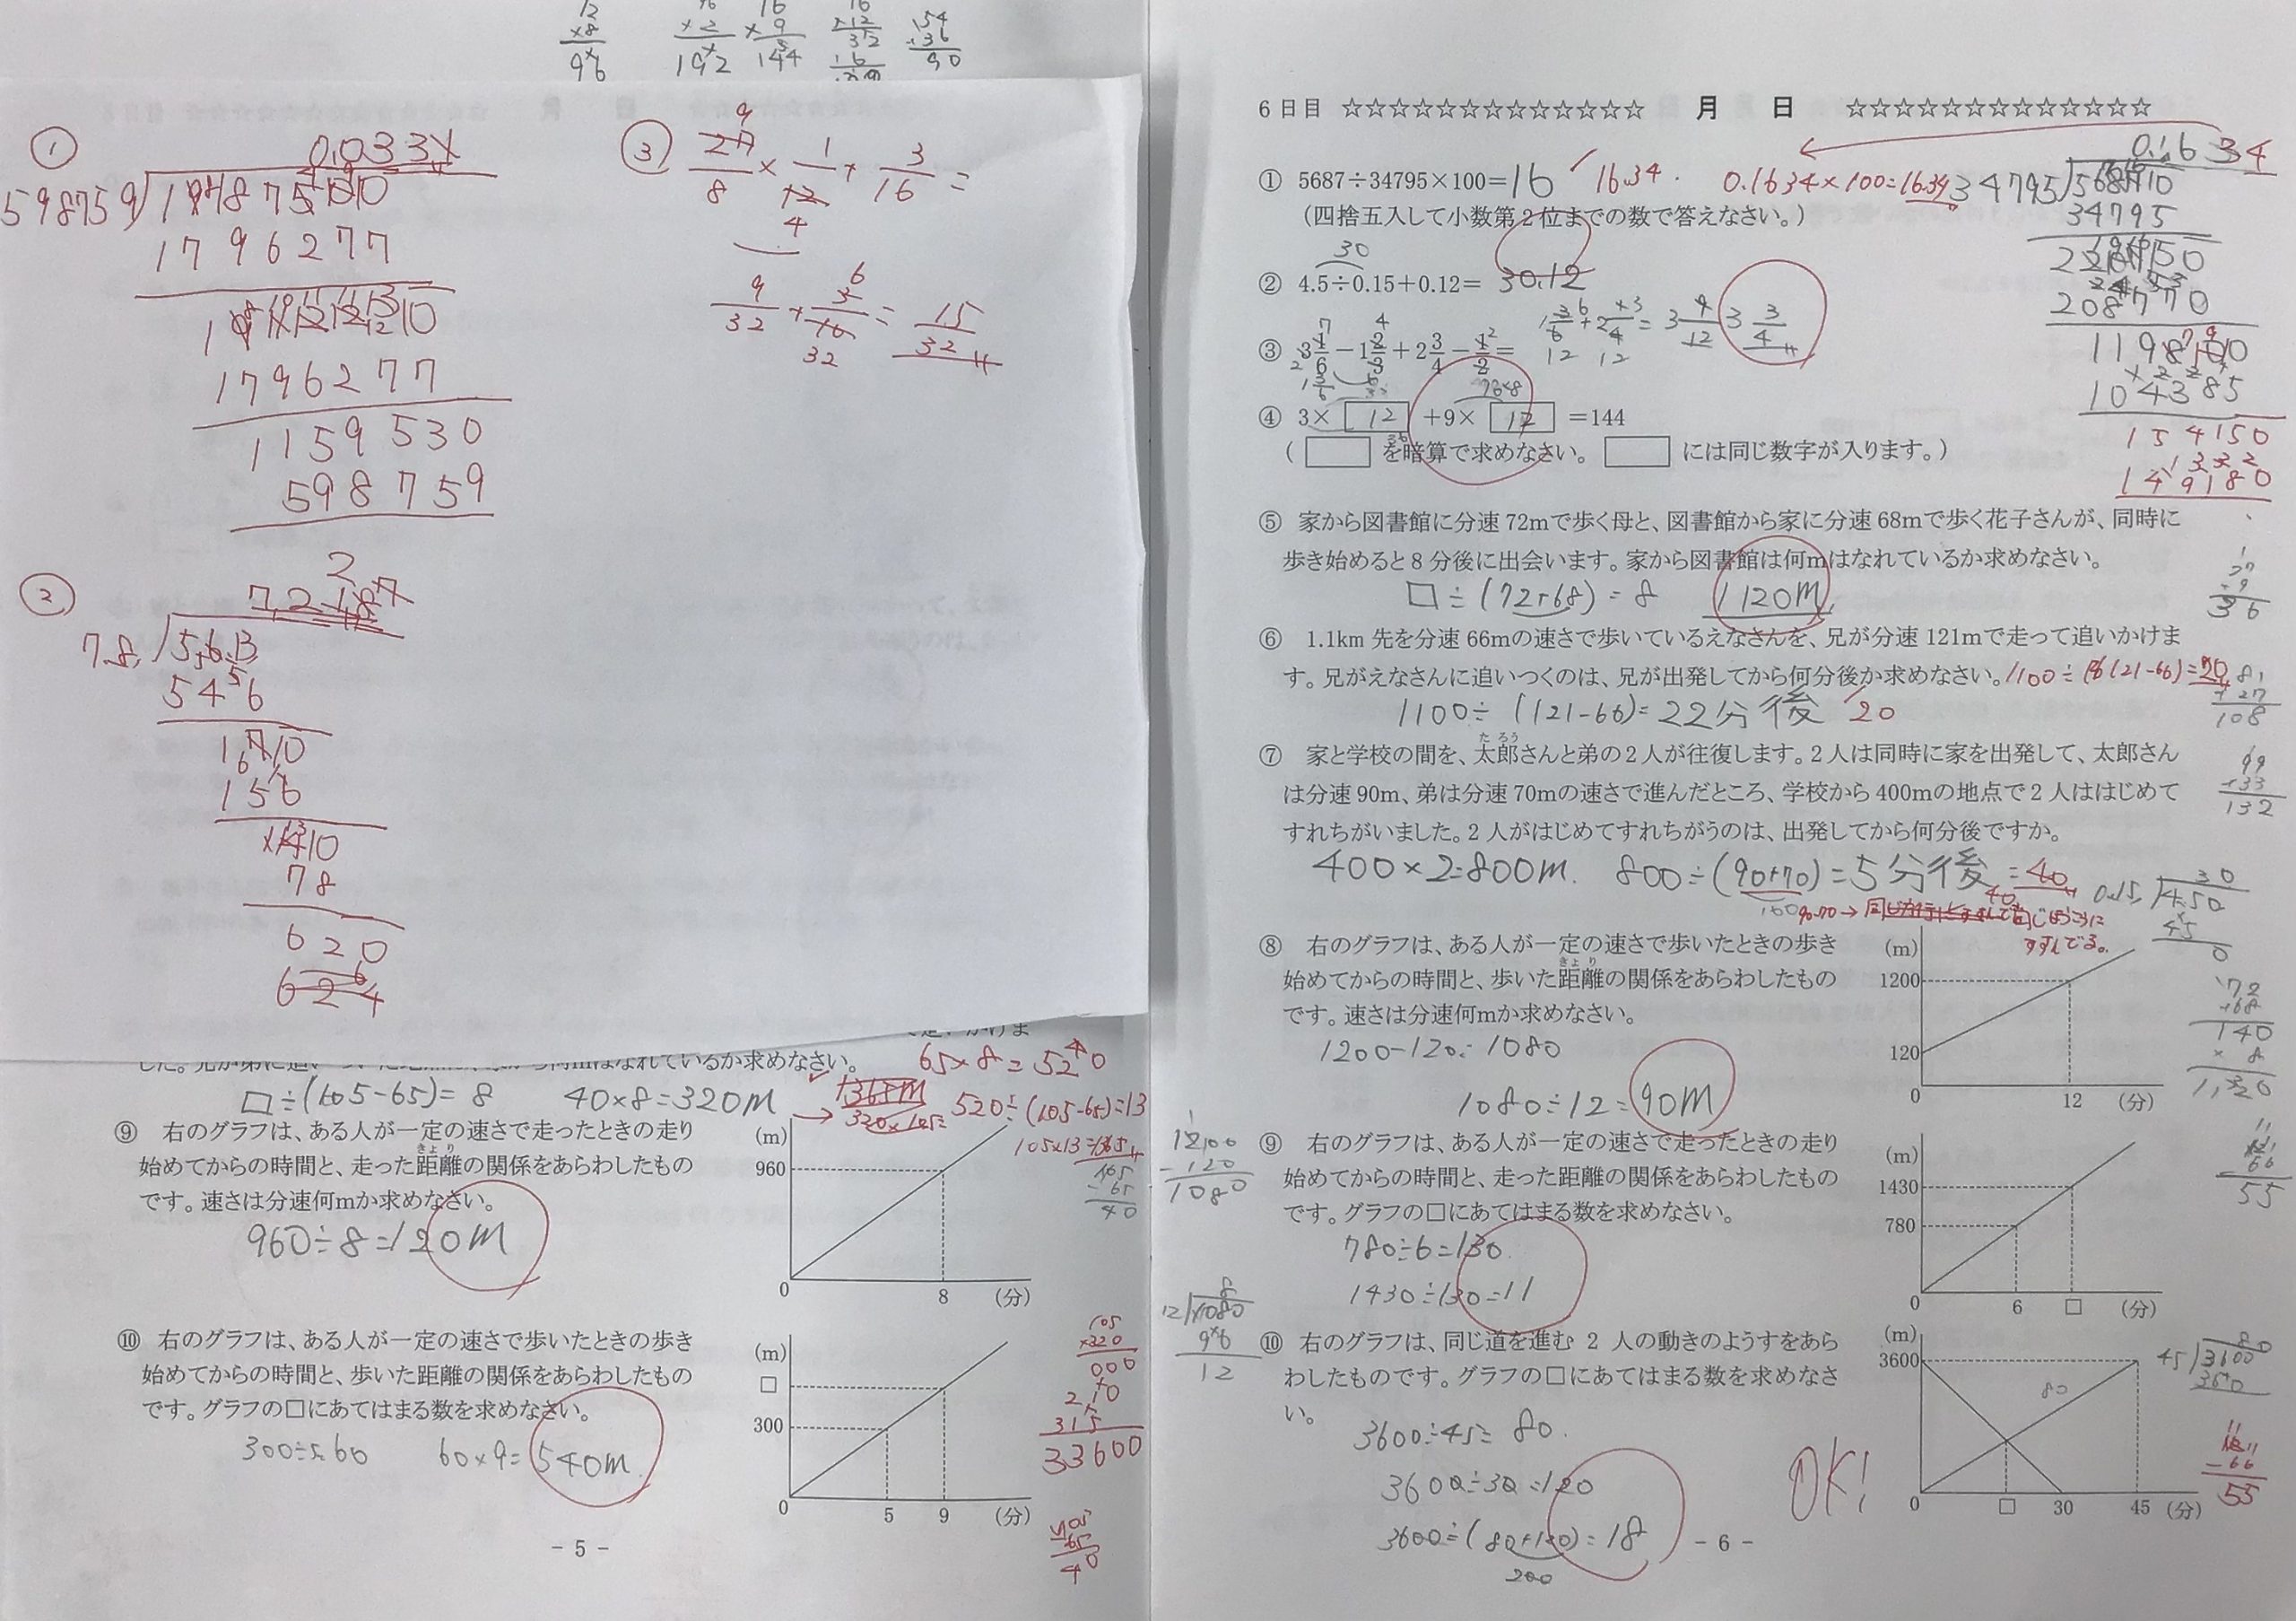 12
×8
96
×2
192
16
×9
144
54
+36
90
①
598759
1796277
1796277
1159530
598759
②
7.8
546
156
78
620
624
③
9
8 × 1 + 3
4 16 =
9
32 + 6
32 = 15
32
65×8=520
□÷(105-65)=8 40×8=320m
520÷(105-65)=13
105×13=1365
105
-65
40
⑨ 右のグラフは、ある人が一定の速さで走ったときの走り
始めてからの時間と、走った距離の関係をあらわしたもの
きょり
です。速さは分速何mか求めなさい。
960÷8=120m
(m)
960
0
8
(分)
⑩ 右のグラフは、ある人が一定の速さで歩いたときの歩き
始めてからの時間と、歩いた距離の関係をあらわしたもの
です。グラフの□にあてはまる数を求めなさい。
300÷5=60 60×9=540m
(m)
□
300
0
5
9
(分)
105
×320
000
210
315
33600
- 5 -
6日目 ☆☆☆☆☆☆☆☆☆☆☆☆☆ 月 日 ☆☆☆☆☆☆☆☆☆☆☆☆☆
① 5687÷34795×100=16 16.34 0.1634×100=16.34
(四捨五入して小数第2位までの数で答えなさい。)
0.1634
34795
34795
208770
104385
154150
149180
30
② 4.5÷0.15+0.12= 30.12
③ 3 1/6 −1 2/3 +2 3/4 − 1/2 = 3 3/4
④ 3× 12 +9× 12 =144
( □ を暗算で求めなさい。 □ には同じ数字が入ります。)
⑤ 家から図書館に分速72mで歩く母と、図書館から家に分速68mで歩く花子さんが、同時に
歩き始めると8分後に出会います。家から図書館は何mはなれているか求めなさい。
□÷(72+68)=8 1120m
27
+9
36
⑥ 1.1km先を分速66mの速さで歩いているえなさんを、兄が分速121mで走って追いかけま
す。兄がえなさんに追いつくのは、兄が出発してから何分後か求めなさい。1100÷(121-66)=20
1100÷(121-66)=22分後 20
81
+27
108
⑦ 家と学校の間を、太郎さんと弟の2人が往復します。2人は同時に家を出発して、太郎さん
たろう
は分速90m、弟は分速70mの速さで進んだところ、学校から400mの地点で2人ははじめて
すれちがいました。2人がはじめてすれちがうのは、出発してから何分後ですか。
99
+33
132
400×2=800m. 800÷(90+70)=5分後 =40
160
90-70→
同じほうこうに
すすんでる。
30
0.15 4.50
45
0
⑧ 右のグラフは、ある人が一定の速さで歩いたときの歩き
始めてからの時間と、歩いた距離の関係をあらわしたもの
きょり
です。速さは分速何mか求めなさい。
1200-120=1080
1080÷12=90m
(m)
1200
120
0
12
(分)
72
+68
140
×8
1120
1200
-120
1080
⑨ 右のグラフは、ある人が一定の速さで走ったときの走り
始めてからの時間と、走った距離の関係をあらわしたもの
です。グラフの□にあてはまる数を求めなさい。
780÷6=130
1430÷130=11
(m)
1430
780
0
6
□
(分)
121
66
55
12 1080
96
12
⑩ 右のグラフは、同じ道を進む 2 人の動きのようすをあら
わしたものです。グラフの□にあてはまる数を求めなさ
い。
3600÷45= 80
3600÷30=120
3600÷(80+120)=18
200
OK!
(m)
3600
80
0
□
30
45
(分)
80
45 3600
360
-66
55
- 6 -